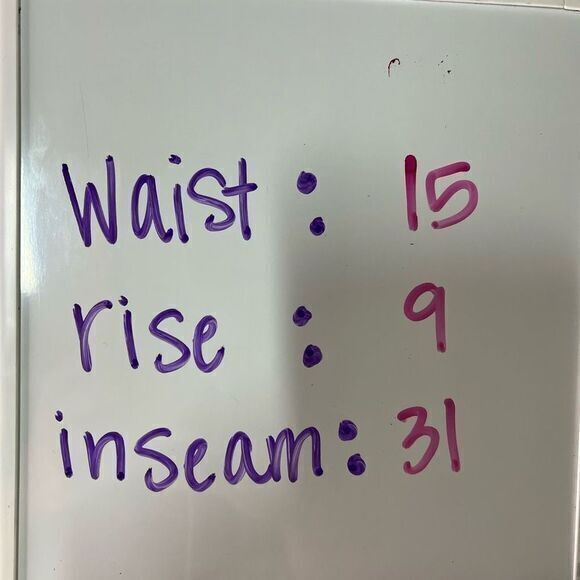 Waist : 15
rise : 9
inseam: 31